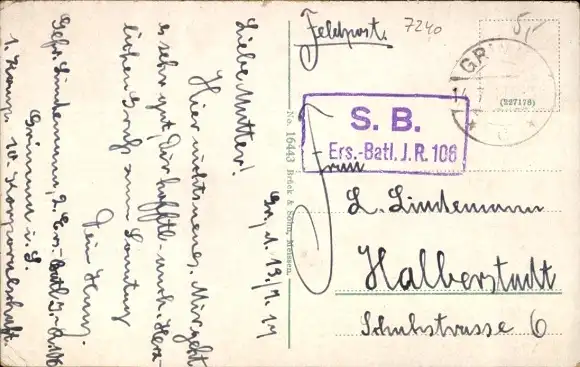 Gr., d. 13./9. 14
Liebe Mutter!
Hier nichts neues. Mir geht
es sehr gut, Dir hofftl. auch. Herz-
lichen Gruß zum Sonntag
Dein Henny.
Gefr. Lindemann, 2. Ers.-Batl. J.-R. 106
Grimma i. S.
1. Komp. 10. Korporalschaft.
No. 16443 Brück & Sohn, Meissen.
Feldpost.
7240
5,-
GRI
(227178)
S. B.
Ers.-Batl. J. R. 106
Frau
L. Lindemann
Halberstadt
Schuhstrasse 6